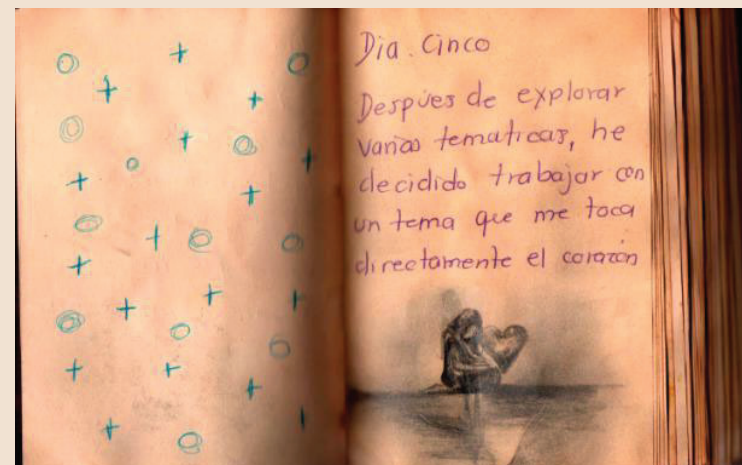 Dia. Cinco
Despúes de explorar
varias tematicas, he
decidido trabajar con
un tema que me toca
directamente el corazón